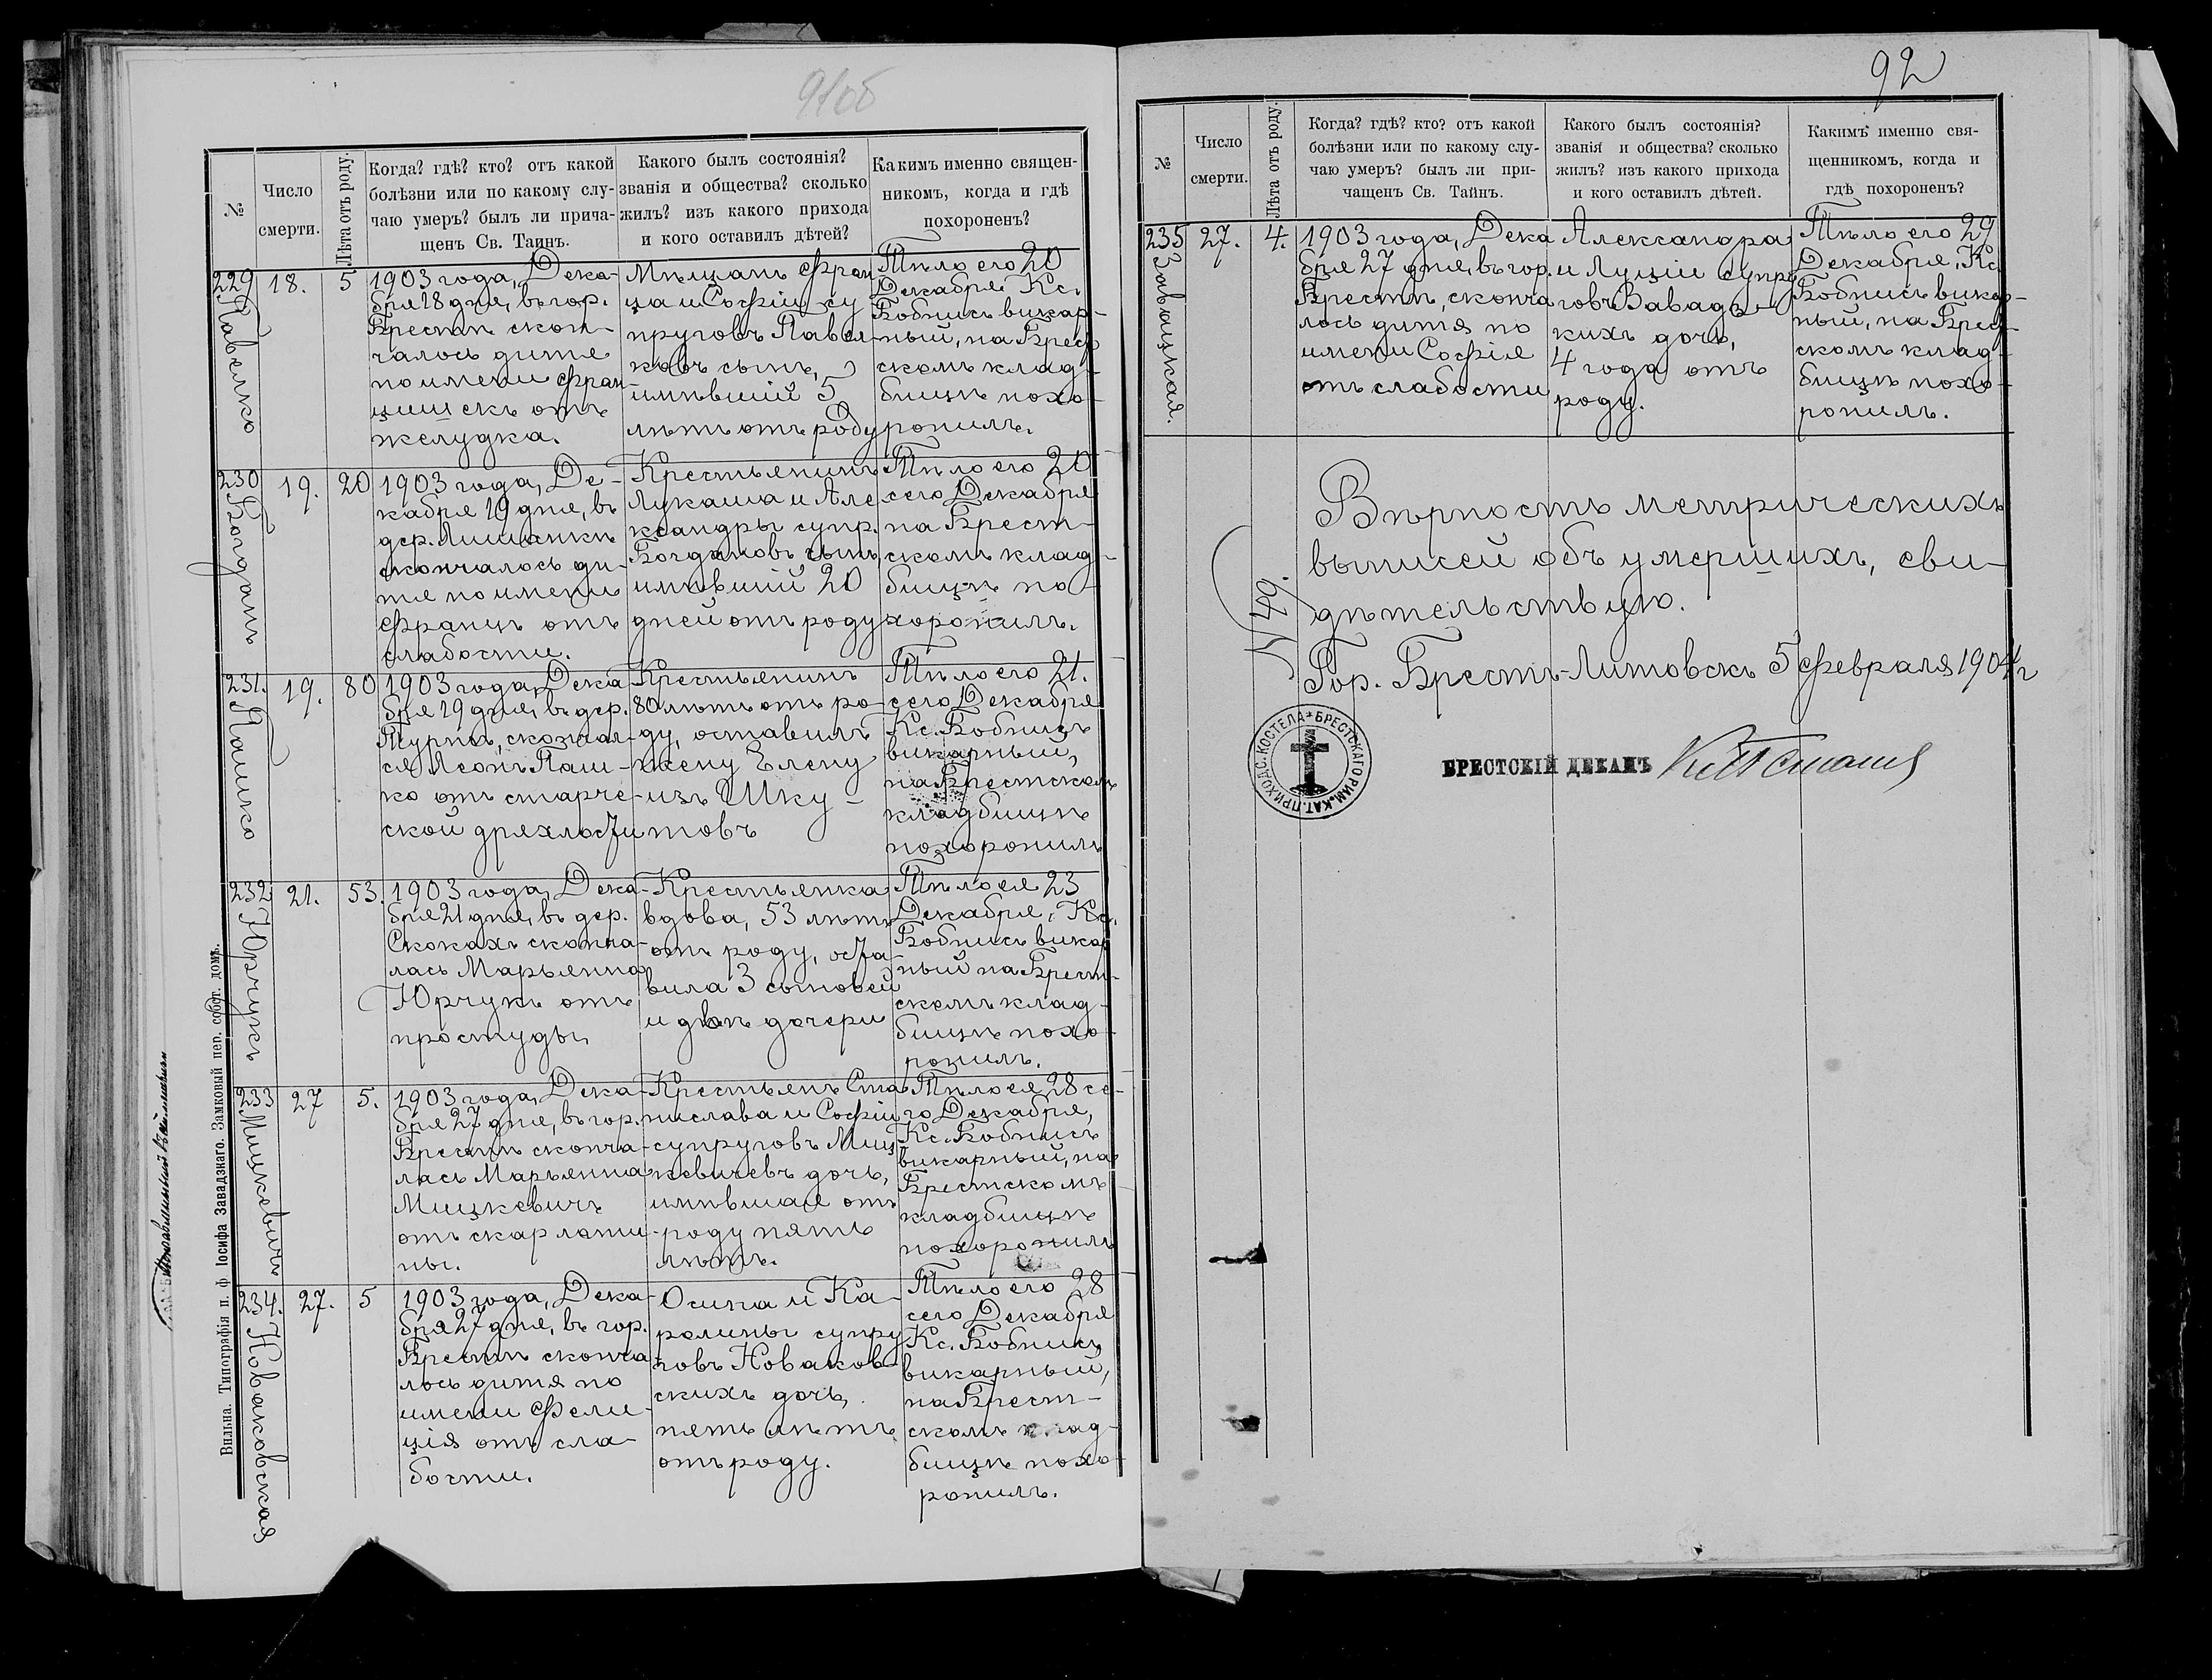 91об
№
Число
смерти.
Лѣта отъ роду.
Когда? гдѣ? кто? отъ какой
болѣзни или по какому слу-
чаю умеръ? былъ ли прича-
щенъ Св. Таинъ.
Какого былъ состоянія?
званія и общества? сколько
жилъ? изъ какого прихода
и кого оставилъ дѣтей?
Какимъ именно священ-
никомъ, когда и гдѣ
похороненъ?
229
Павелко
18.
5
1903 года, Дека-
бря 18 дня, въ гор.
Брестѣ скон-
чалось дитя
по имени Фран-
цишекъ отъ
желудка.
Мѣщанъ Фран
ца и Софіи су
пруговъ Павел-
ковъ сынъ,
имѣвшій 5
лѣтъ отъ роду
Тѣло его 20
Декабря Кс.
Бобнисъ викар-
ный, на Брест
скомъ клад-
бищѣ похо-
ронилъ.
230
Богданъ
19.
20
1903 года, Де-
кабря 19 дня, въ
дер. Лишанкѣ
скончалось ди-
тя по имени
Францъ отъ
слабости.
Крестьянинъ
Лукаша и Але
ксандры супр.
Богдановъ сынъ,
имѣвшій 20
дней отъ роду
Тѣло его 20
сего Декабря
на Брест-
скомъ клад-
бищѣ по-
хоронилъ.
231.
Пашко
19.
80
1903 года, Дека
бря 19 дня, въ дер.
Тюрнѣ, скончал-
ся Леонъ Паш-
ко отъ старче-
ской дряхлости
Крестьянинъ
80 лѣтъ отъ ро-
ду, оставилъ
жену Елену
изъ Шку-
товъ
Тѣло его 21.
сего Декабря
Кс. Бобнисъ
викарный,
на Брестскомъ
кладбищѣ
похоронилъ
232
Юрчукъ
21.
53.
1903 года, Дека-
бря 21 дня, въ дер.
Скокахъ сконча-
лась Марьянна
Юрчукъ отъ
простуды
Крестьянка
вдова, 53 лѣтъ
отъ роду, оста-
вила 3 сыновей
и двѣ дочери
Тѣло ея 23
Декабря, Кс.
Бобнисъ викар
ный на Брест-
скомъ клад-
бищѣ похо-
ронилъ.
233
Мицкевичъ
27
5.
1903 года, Дека-
бря 27 дня, въ гор.
Брестѣ сконча-
лась Марьянна
Мицкевичъ
отъ скарлати-
ны.
Крестьянъ Ста
нислава и Софіи
супруговъ Миц
кевичевъ дочь,
имѣвшая отъ
роду пять
лѣтъ.
Тѣло ея 28 се-
го Декабря,
Кс. Бобнисъ
викарный, на
Брестскомъ
кладбищѣ
похоронилъ
234.
Новаковская
27.
5
1903 года, Дека-
бря 27 дня, въ гор.
Брестѣ сконча
лось дитя по
имени Фели-
ція отъ сла-
бости.
Осипа и Ка-
ролины супру
говъ Новаков-
скихъ дочь,
пять лѣтъ
отъ роду.
Тѣло его 28
сего Декабря
Кс. Бобнисъ
викарный,
на Брест-
скомъ клад-
бищѣ похо-
ронилъ.
Вильна. Типографія п. ф. Іосифа Завадзкаго. Замковый пер. собст. домъ.
92
№
Число
смерти.
Лѣта отъ роду.
Когда? гдѣ? кто? отъ какой
болѣзни или по какому слу-
чаю умеръ? былъ ли при-
чащенъ Св. Таинъ.
Какого былъ состоянія?
званія и общества? сколько
жилъ? изъ какого прихода
и кого оставилъ дѣтей.
Какимъ именно свя-
щенникомъ, когда и
гдѣ похороненъ?
235
Завацкая.
27.
4.
1903 года, Дека
бря 27 дня, въ гор.
Брестѣ, сконча
лось дитя по
имени Софія
отъ слабости
Александра
и Луціи супру
говъ Завадз-
кихъ дочь,
4 года отъ
роду.
Тѣло его 29
Декабря, Кс.
Бобнисъ викар-
ный, на Брест-
скомъ клад-
бищѣ похо-
ронилъ.
Вѣрность метрическихъ
выписей объ умершихъ, сви-
дѣтельствую.
N 49.
Гор. Брестъ-Литовскъ 5 февраля 1904 г
БРЕСТСКАГО РИМ. КАТ. ПРИХОДС. КОСТЕЛА
БРЕСТСКІЙ ДЕКАНЪ